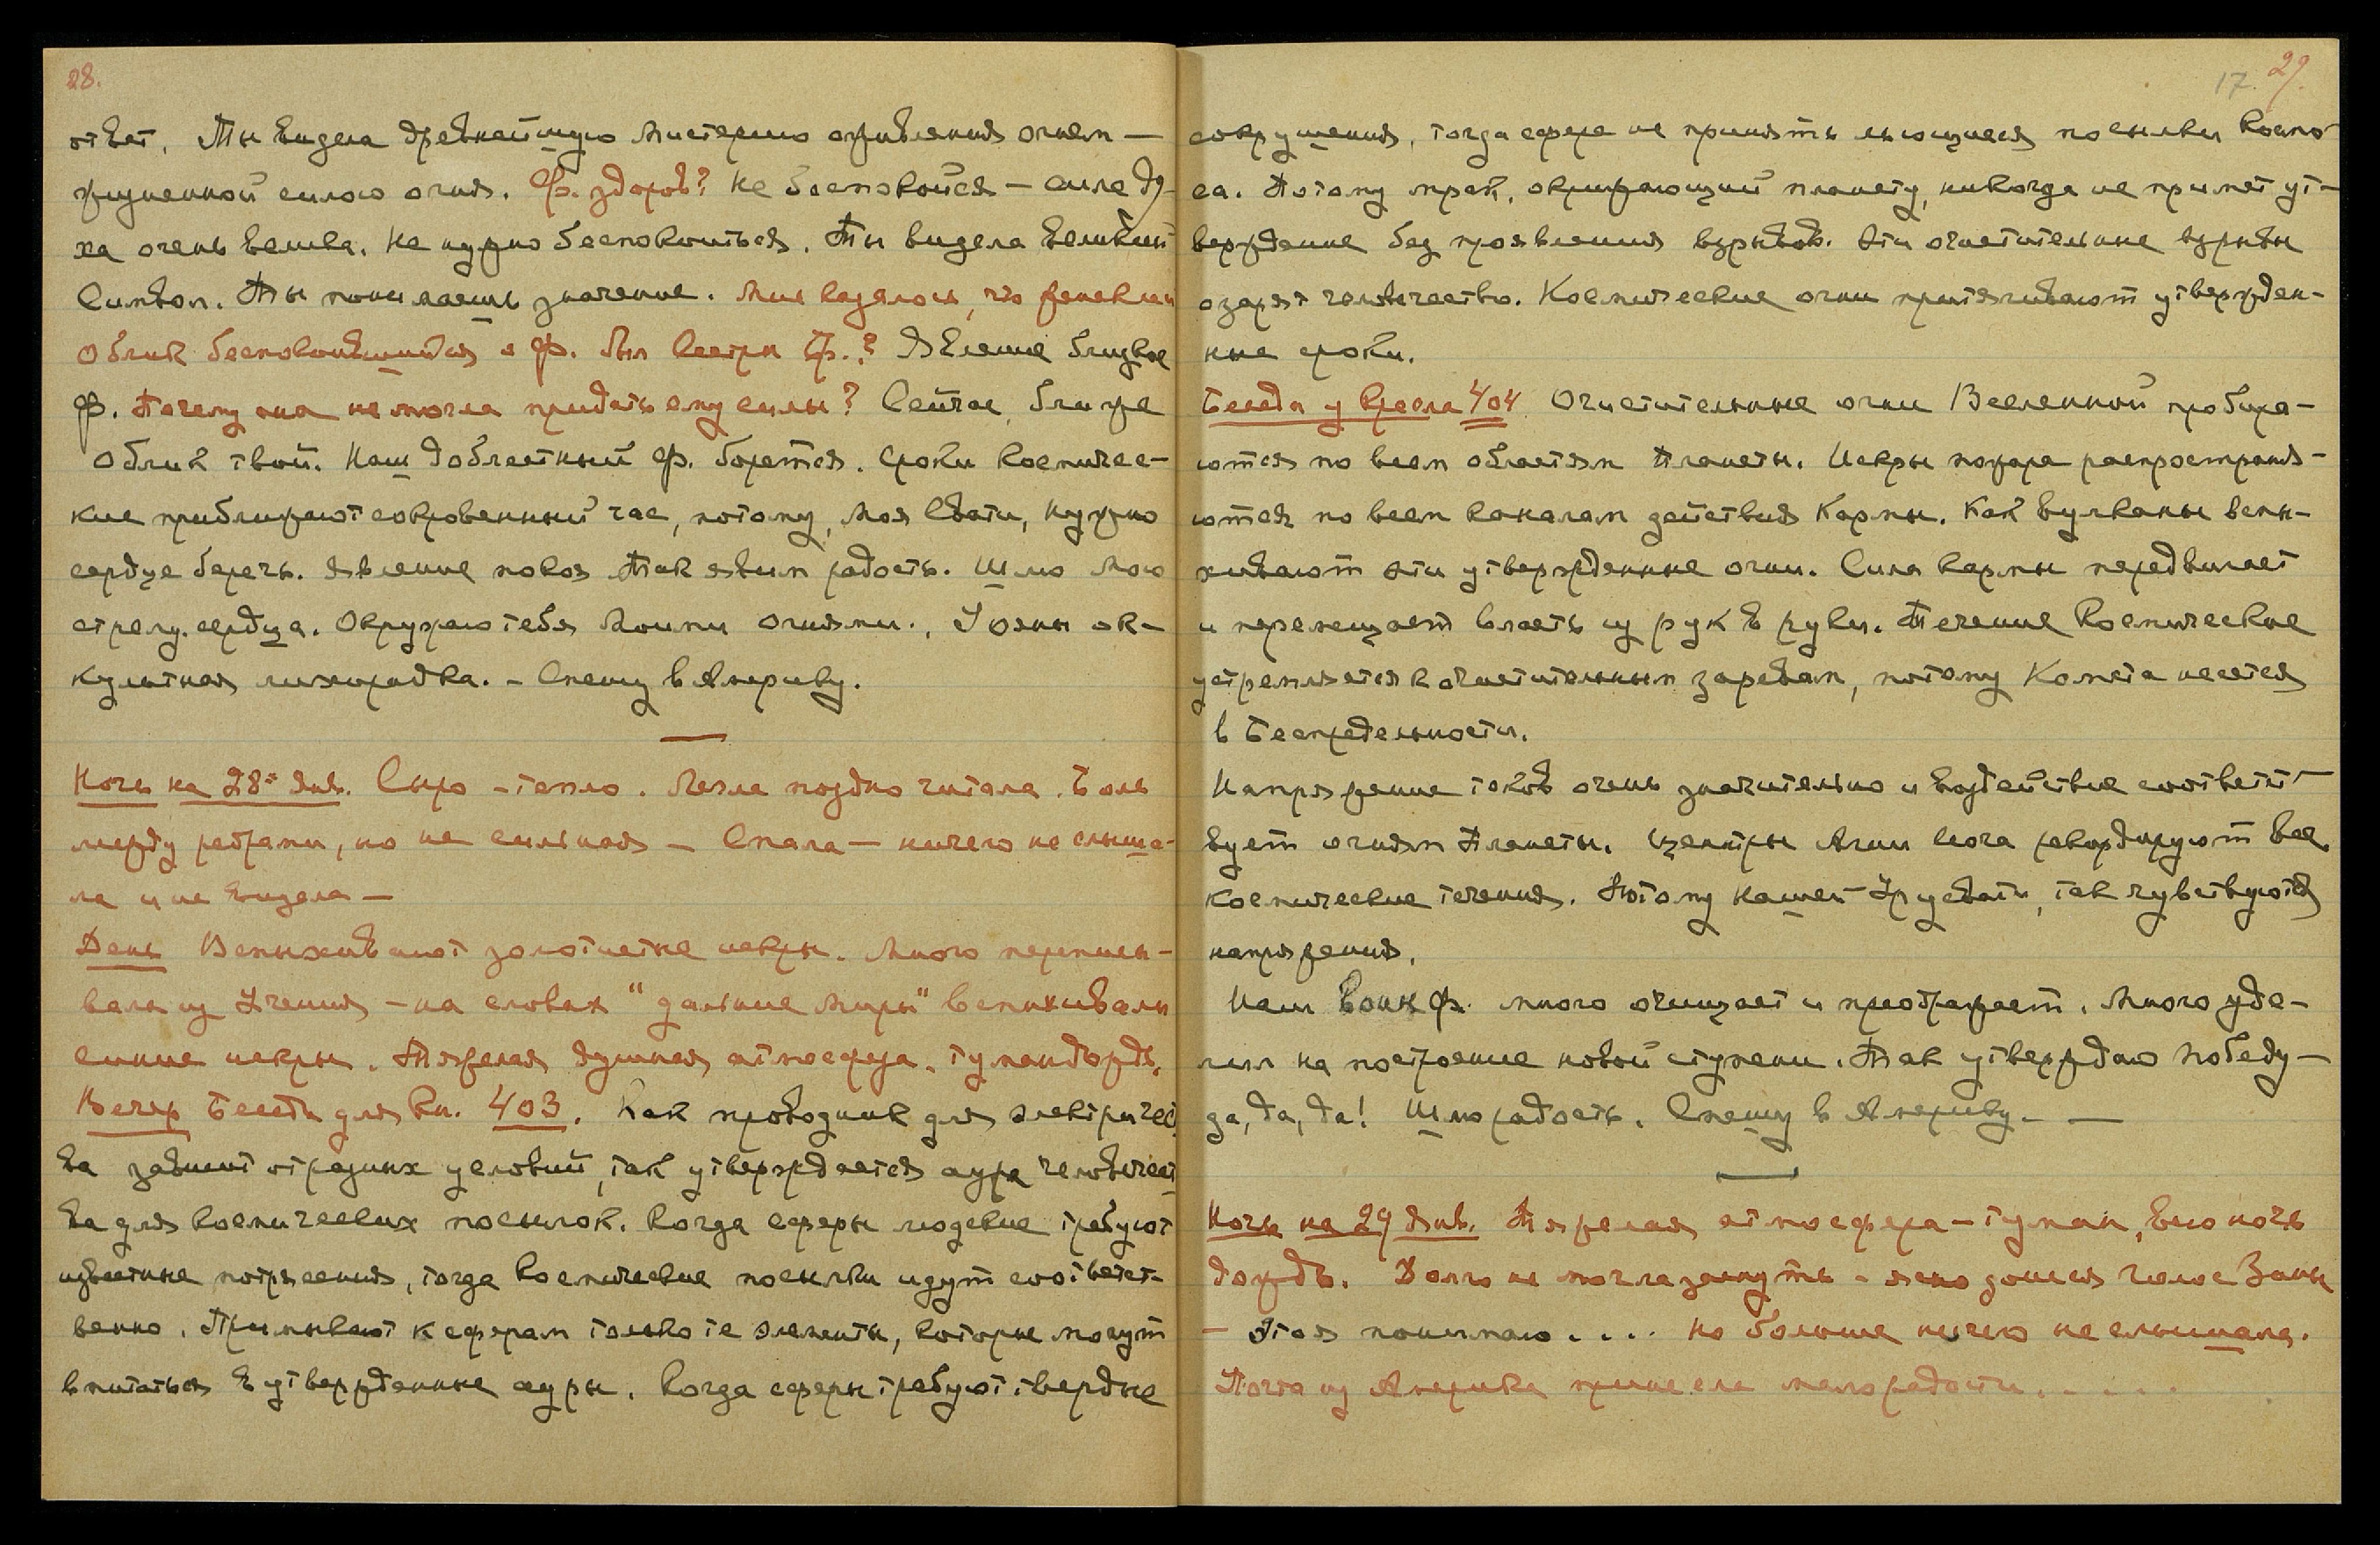 28.
ответ. Ты видела древнейшую Мистерию оживления огнем —
жизненной силою огня. Ф. здоров? Не беспокойся — сила Ду-
ха очень велика. Не нужно беспокоиться. Ты видела Великий
Символ. Ты понимаешь значение. Мне казалось, что женский
Облик беспокоившийся о Ф. был Сестры Ф.? Явление близкое
Ф. Почему она не могла придать ему силы? Сейчас ближе
Облик твой. Наш доблестный Ф. борется. Сроки космичес-
кие приближают сокровенный час, потому, Моя Свати, нужно
сердце беречь. Явление покоя. Так явим радость. Шлю Мою
стрелу сердца. Окружаю тебя Моими огнями.
культная лихорадка. – Спешу в Америку.
Ночь на 28-е Янв. Сыро – тепло. Легла поздно читала. Боль
между ребрами, но не сильная – Спала – ничего не слыша-
ла и не видела –
День Вспыхивают золотистые искры. Много переписы-
вала из Учения – на словах "дальние Миры" вспыхивали
синие искры. Тяжелая душная атмосфера. Туман дождь.
Вечер Беседы для Кн. 403. Как проводник для электричест
ва зависит от разных условий, так утверждается аура человечест
ва для космических посылок. Когда сферы людские требуют
известные потрясения, тогда Космические посылки идут соответст-
венно. Примыкают к сферам только те элементы, которые могут
впитаться в утвержденные ауры. Когда сферы требуют твердые
17. 29.
сокрушения, тогда сфере не принять льющиеся посылки Космо-
са. Потому мрак, окружающий планету, никогда не примет ут-
верждение без проявления взрывов. Эти очистительные взрывы
озарят человечество. Космические огни притягивают утвержден-
ные сроки.
Беседы у Кресла 404. Очистительные огни Вселенной пробира-
ются по всем областям Планеты. Искры пожара распространя-
ются по всем каналам действия Кармы. Как вулканы вспы-
хивают эти утвержденные огни. Сила Кармы передвигает
и перемещает власть из рук в руки. Течение Космическое
устремляется к очистительным заревам, потому Комета несется
в Беспредельности.
Напряжение токов очень значительно и воздействие соответст-
вует огням Планеты. Центры Агни Йога рекордируют все
космические течения. Потому нашей Урусвати, так чувствуются
напряжения.
Наш Воин Ф. много очищает и преображает. Много уде-
лил на построение новой ступени. Так утверждаю победу –
да, да, да! Шлю радость. Спешу в Америку. —
Ночь на 29 Янв. Тяжелая атмосфера – туман, всю ночь
дождь. Долго не могла заснуть – ясно донесся голос Зины
– Это я понимаю.... но больше ничего не слышала.
Почта из Америки принесла мало радости.....